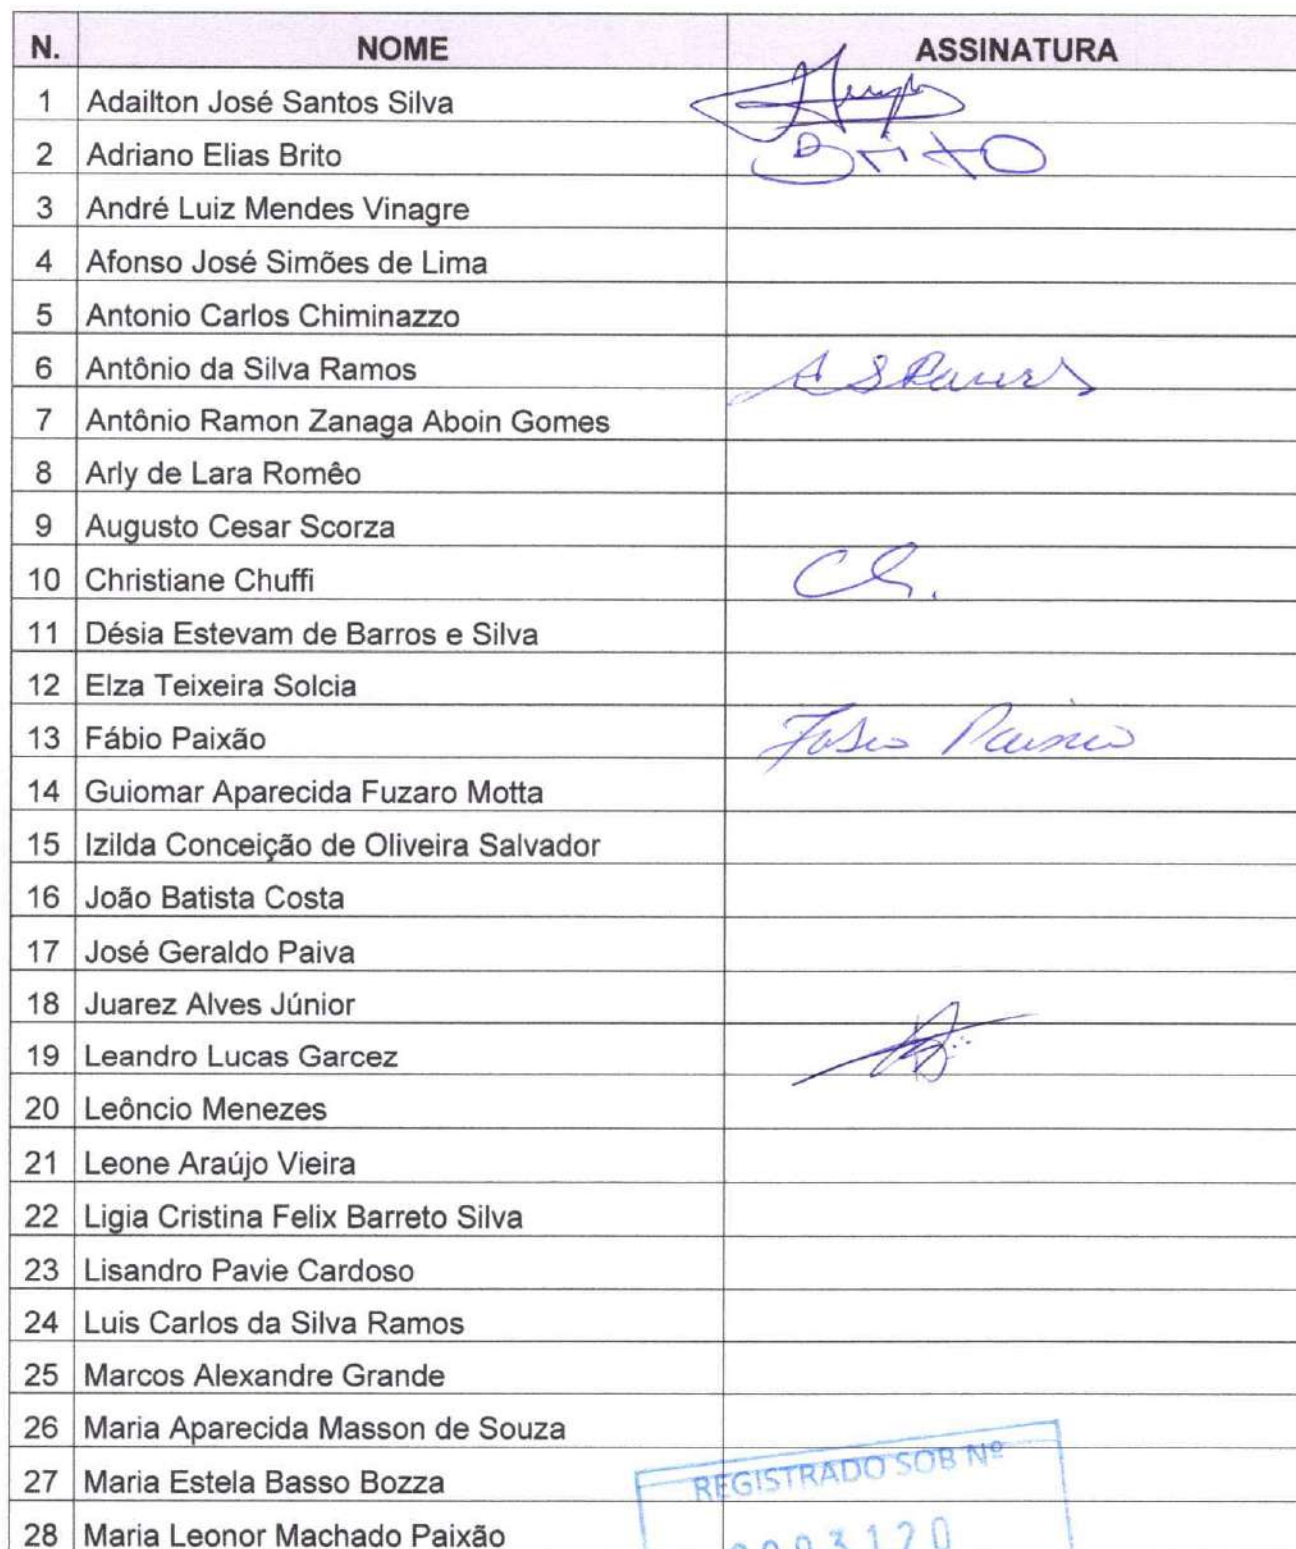 N. NOME ASSINATURA
1 Adailton José Santos Silva
2 Adriano Elias Brito Brito
3 André Luiz Mendes Vinagre
4 Afonso José Simões de Lima
5 Antonio Carlos Chiminazzo
6 Antônio da Silva Ramos A S Ramos
7 Antônio Ramon Zanaga Aboin Gomes
8 Arly de Lara Romêo
9 Augusto Cesar Scorza
10 Christiane Chuffi Ch.
11 Désia Estevam de Barros e Silva
12 Elza Teixeira Solcia
13 Fábio Paixão Fabio Paixão
14 Guiomar Aparecida Fuzaro Motta
15 Izilda Conceição de Oliveira Salvador
16 João Batista Costa
17 José Geraldo Paiva
18 Juarez Alves Júnior
19 Leandro Lucas Garcez
20 Leôncio Menezes
21 Leone Araújo Vieira
22 Ligia Cristina Felix Barreto Silva
23 Lisandro Pavie Cardoso
24 Luis Carlos da Silva Ramos
25 Marcos Alexandre Grande
26 Maria Aparecida Masson de Souza
27 Maria Estela Basso Bozza
REGISTRADO SOB Nº
28 Maria Leonor Machado Paixão
0003120